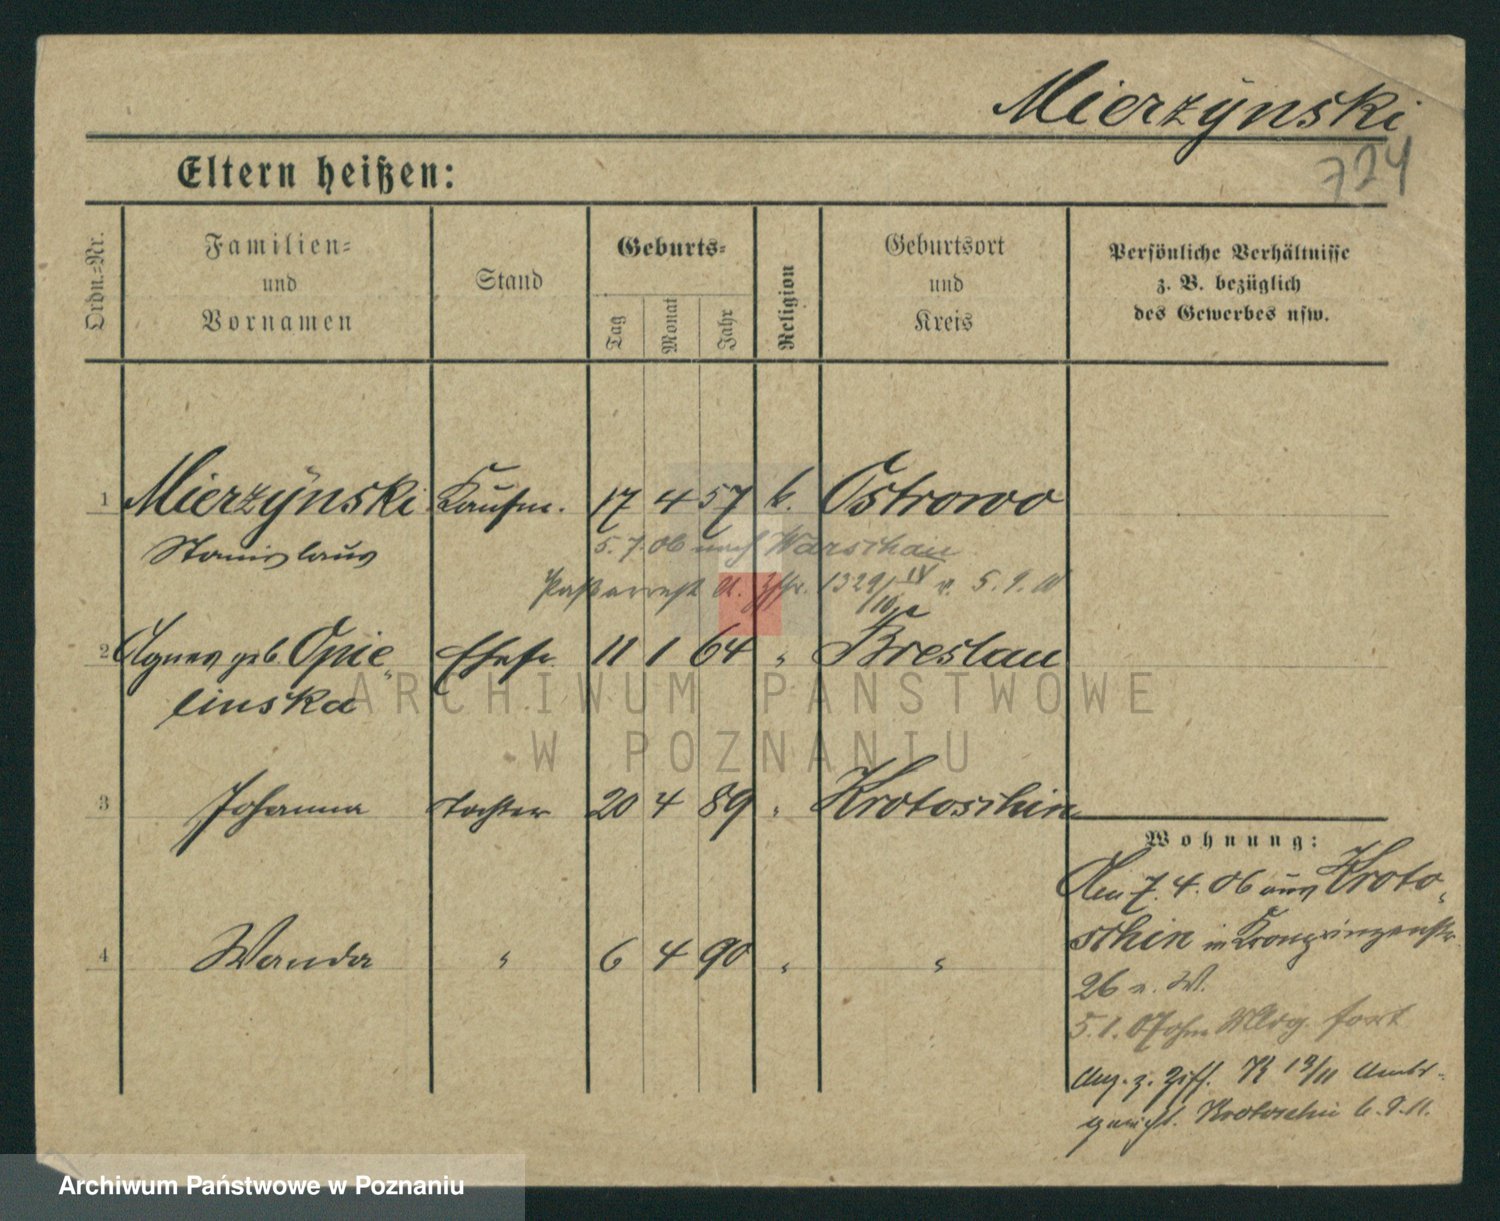 Mierzÿnski
724
Eltern heißen:
Ordn.=Nr.
Familien=
und
Vornamen
Stand
Geburts=
Tag
Monat
Jahr
Religion
Geburtsort
und
Kreis
Persönliche Verhältnisse
z. B. bezüglich
des Gewerbes usw.
1 Mierzÿnski Kaufm. 17 4 57 k. Ostrowo
Stanislaus
5. 7. 06 nach Warschau
1329/IV v. 5. 9.
2 Agnes geb. Opie„ Ehefr. 11 1 64 " Breslau
linska
3 Johanna Tochter 20 4 89 " Krotoschin
Wohnung:
Am 7. 4. 06 aus Kroto„
schin in Kronprinzenstr.
4 Wanda " 6 4 90 " "
26 n. W.
5. 1. 07 ohne Mldg. fort
Anz. z. Ziff. K 19/11 Amts-
gericht. Krotoschin 6. 9. 11.
ARCHIWUM PAŃSTWOWE
W POZNANIU
Archiwum Państwowe w Poznaniu